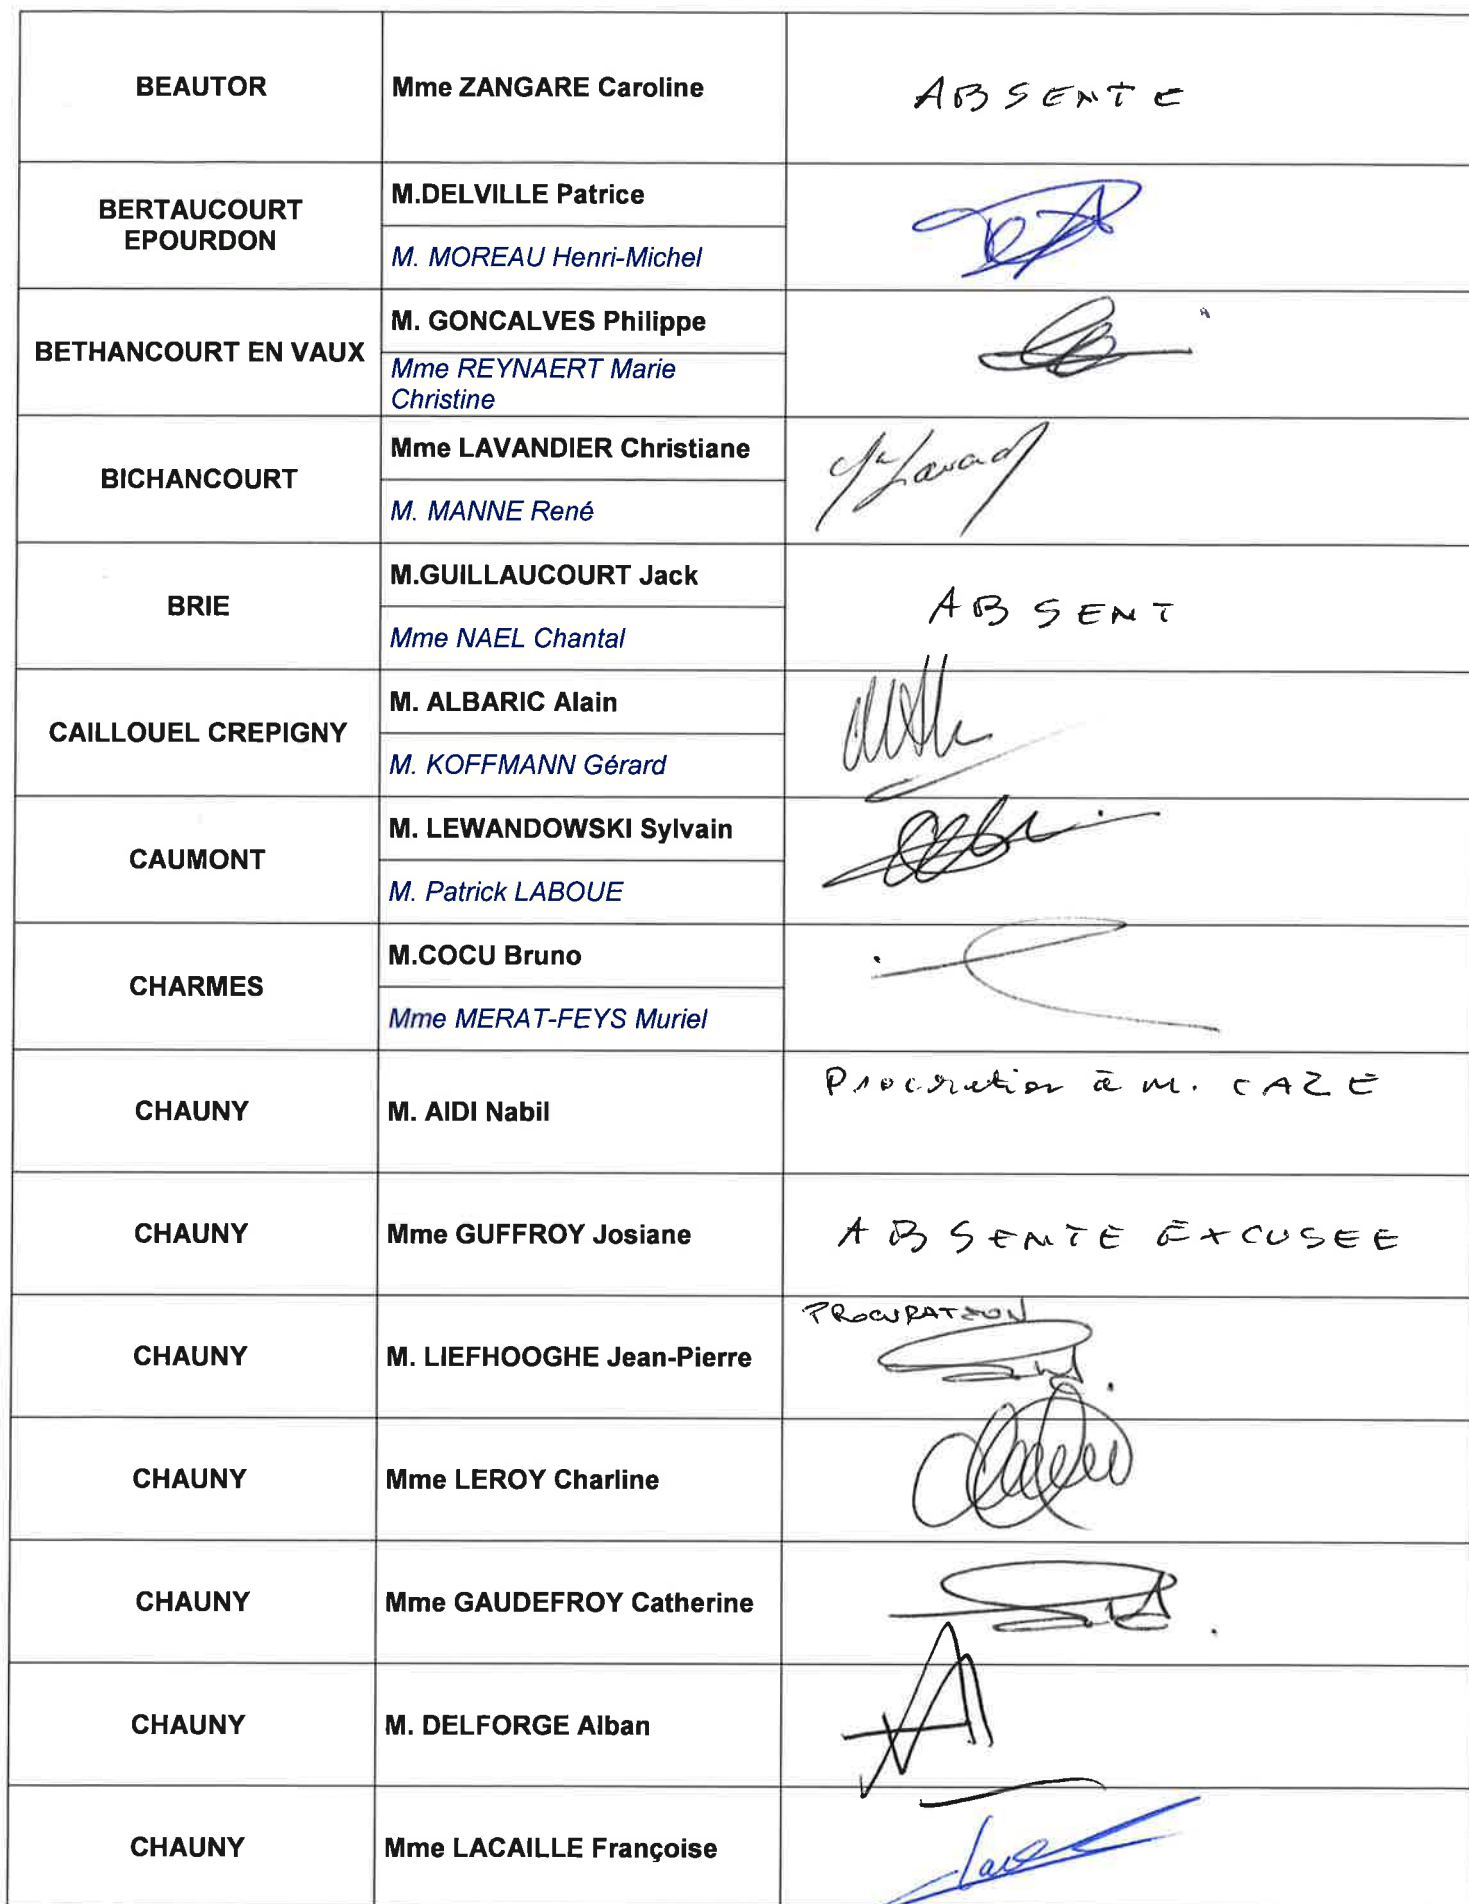 BEAUTOR
Mme ZANGARE Caroline
ABSENTE
BERTAUCOURT
EPOURDON
M.DELVILLE Patrice
M. MOREAU Henri-Michel
BETHANCOURT EN VAUX
M. GONCALVES Philippe
Mme REYNAERT Marie
Christine
BICHANCOURT
Mme LAVANDIER Christiane
M. MANNE René
BRIE
M.GUILLAUCOURT Jack
Mme NAEL Chantal
ABSENT
CAILLOUEL CREPIGNY
M. ALBARIC Alain
M. KOFFMANN Gérard
CAUMONT
M. LEWANDOWSKI Sylvain
M. Patrick LABOUE
CHARMES
M.COCU Bruno
Mme MERAT-FEYS Muriel
CHAUNY
M. AIDI Nabil
Procuration à M. CAZE
CHAUNY
Mme GUFFROY Josiane
ABSENTE EXCUSEE
CHAUNY
M. LIEFHOOGHE Jean-Pierre
PROCURATION
CHAUNY
Mme LEROY Charline
CHAUNY
Mme GAUDEFROY Catherine
CHAUNY
M. DELFORGE Alban
CHAUNY
Mme LACAILLE Françoise